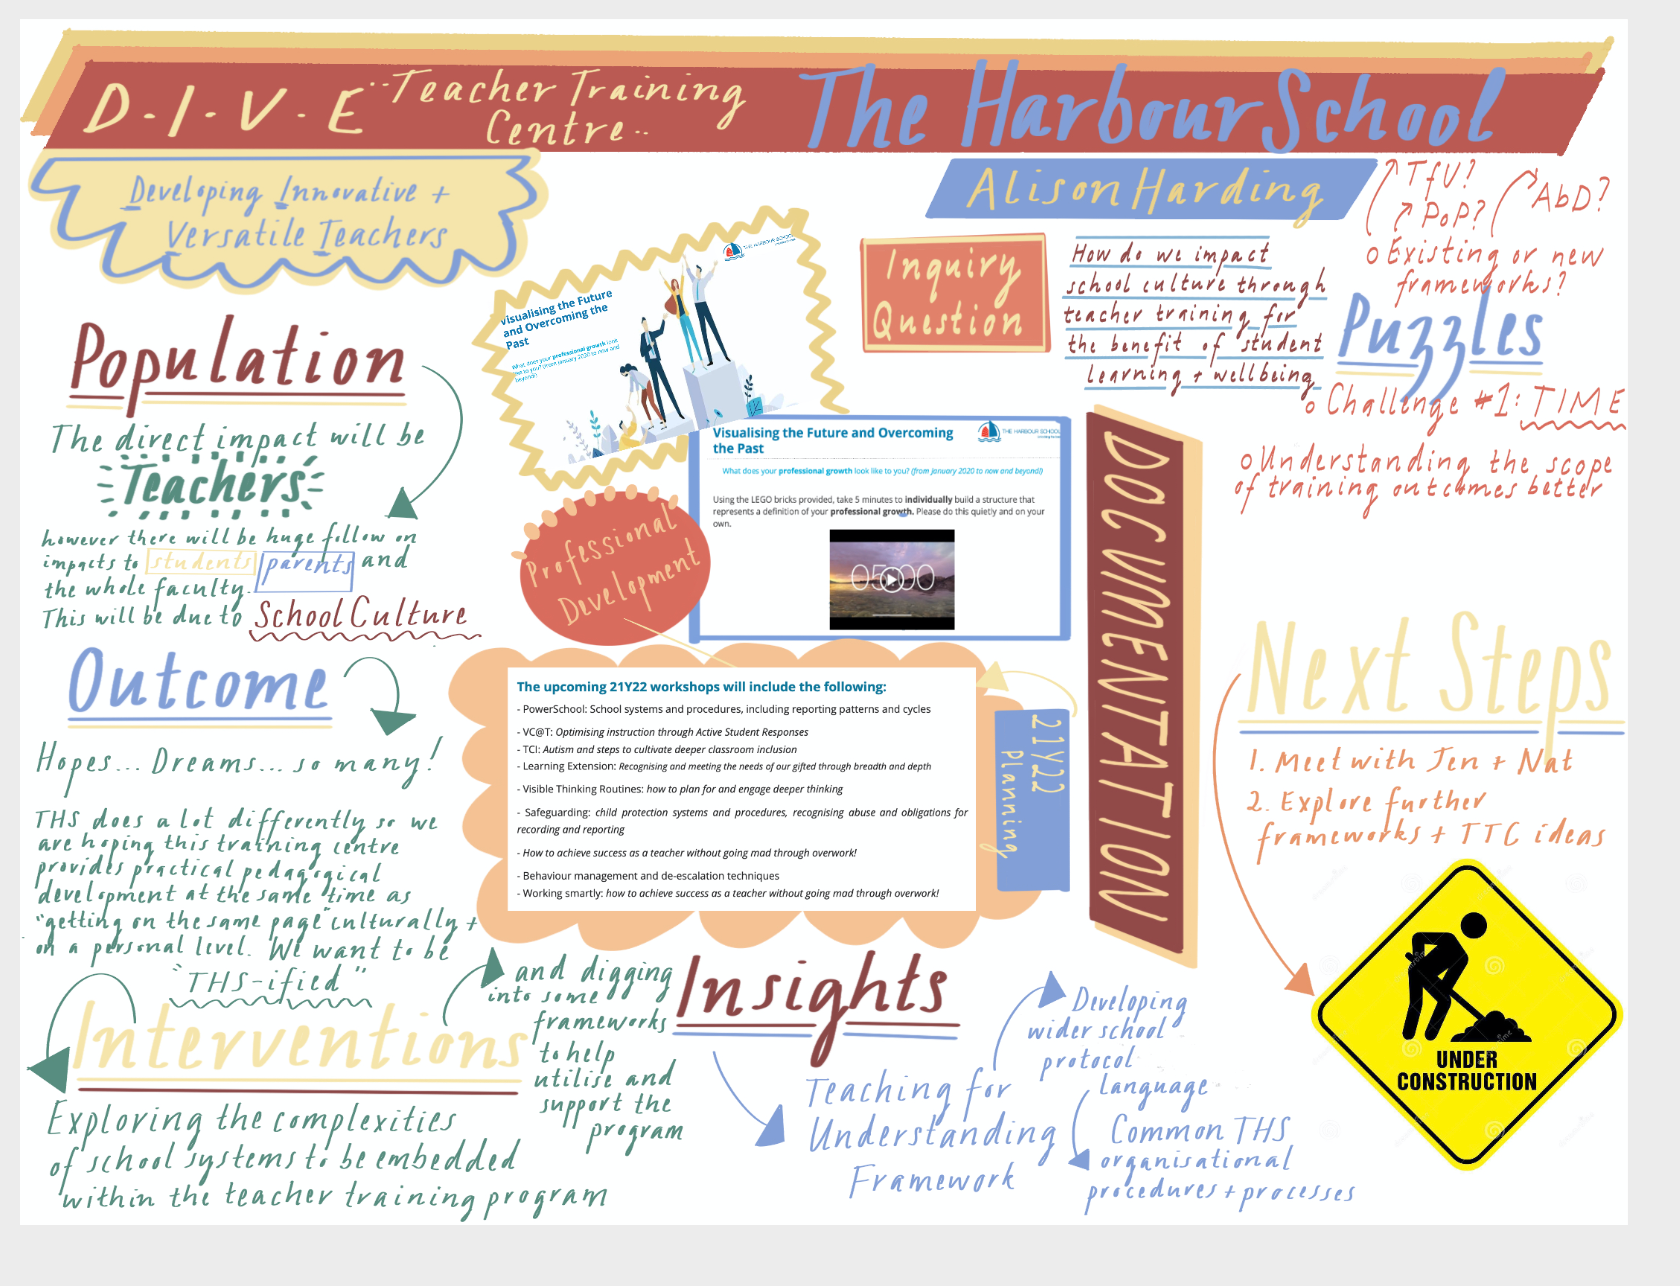 D.I.V.E
Teacher Training
Centre
The Harbour School
Developing Innovative +
Versatile Teachers
Alison Harding
TfU?
PoP?
AbD?
Existing or new
frameworks?
Puzzles
Challenge #1: TIME
Understanding the scope
of training outcomes better
Inquiry
Question
How do we impact
school culture through
teacher training for
the benefit of student
learning + wellbeing
Population
The direct impact will be
Teachers
however there will be huge follow on
impacts to students parents and
the whole faculty.
This will be due to School Culture
THE HARBOUR SCHOOL
Visualising the Future
and Overcoming the
Past
What does your professional growth look
like to you? (from January 2020 to now and
beyond!)
Visualising the Future and Overcoming
the Past
THE HARBOUR SCHOOL
What does your professional growth look like to you? (from January 2020 to now and beyond!)
Using the LEGO bricks provided, take 5 minutes to individually build a structure that
represents a definition of your professional growth. Please do this quietly and on your
own.
05:00
Professional
Development
DOCUMENTATION
Outcome
Hopes... Dreams... so many!
THS does a lot differently so we
are hoping this training centre
provides practical pedagogical
development at the same time as
"getting on the same page" culturally +
on a personal level. We want to be
"THS-ified"
The upcoming 21Y22 workshops will include the following:
- PowerSchool: School systems and procedures, including reporting patterns and cycles
- VC@T: Optimising instruction through Active Student Responses
- TCI: Autism and steps to cultivate deeper classroom inclusion
- Learning Extension: Recognising and meeting the needs of our gifted through breadth and depth
- Visible Thinking Routines: how to plan for and engage deeper thinking
- Safeguarding: child protection systems and procedures, recognising abuse and obligations for
recording and reporting
- How to achieve success as a teacher without going mad through overwork!
- Behaviour management and de-escalation techniques
- Working smartly: how to achieve success as a teacher without going mad through overwork!
21Y22
Planning
Next Steps
1. Meet with Jen + Nat
2. Explore further
frameworks + TTC ideas
UNDER
CONSTRUCTION
Interventions
Exploring the complexities
of school systems to be embedded
within the teacher training program
and digging
into some
frameworks
to help
utilise and
support the
program
Insights
Teaching for
Understanding
Framework
Developing
wider school
protocol
Language
Common THS
organisational
procedures + processes